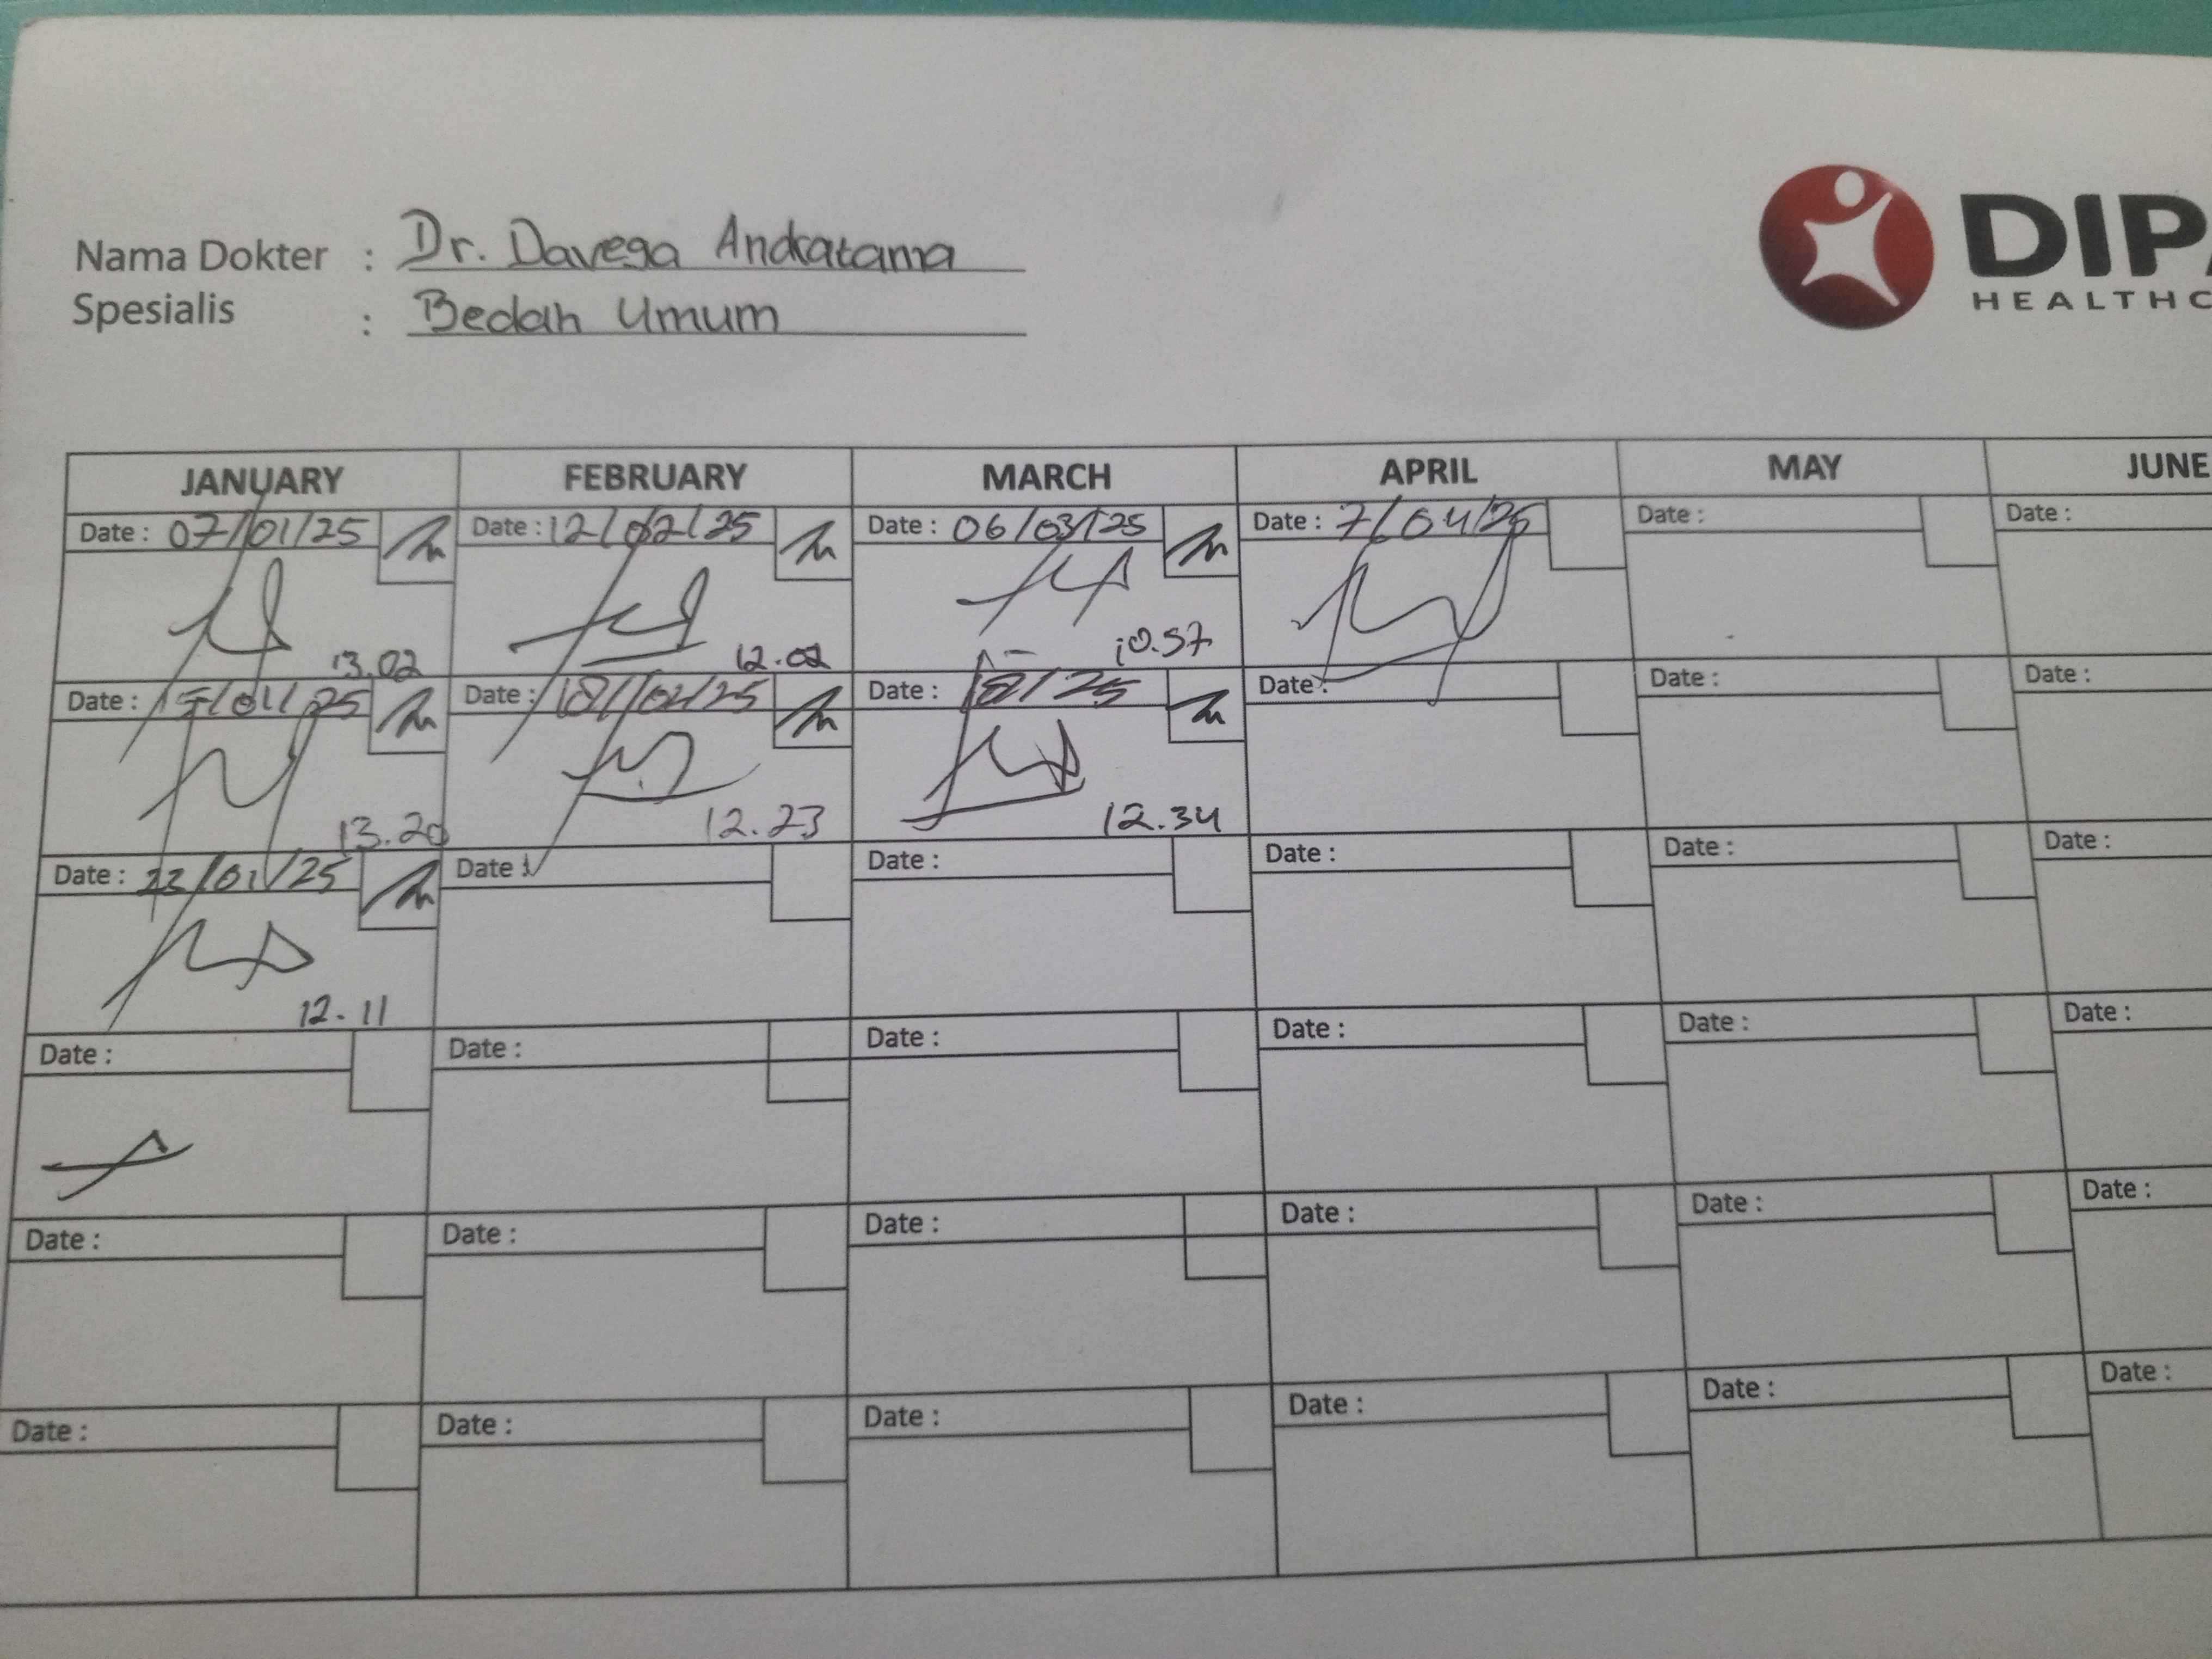 Nama Dokter : Dr. Davega Andratama
Spesialis : Bedah Umum
DIP
HEALTHC
JANUARY FEBRUARY MARCH APRIL MAY JUNE
Date : 07/01/25 Date : 12/02/25 Date : 06/03/25 Date : 7/04/25 Date : Date :
13.02 12.02 10.57
Date : 15/01/25 Date : 18/02/25 Date : Date : Date : Date :
13.20 12.23 12.34
Date : 23/01/25 Date : Date : Date : Date : Date :
12.11
Date : Date : Date : Date : Date : Date :
Date : Date : Date : Date : Date : Date :
Date : Date : Date : Date : Date : Date :